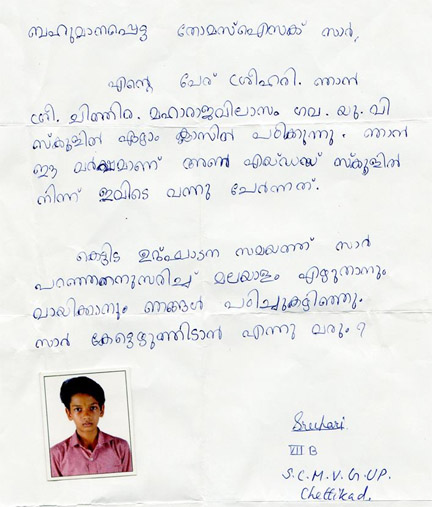 ബഹുമാനപ്പെട്ട തോമസ്ഐസക് സാർ,
എന്റെ പേര് ശ്രീഹരി. ഞാൻ
ശ്രീ. ചിത്തിര. മഹാരാജവിലാസം ഗവ. യു. പി
സ്കൂളിൽ ഏഴാം ക്ലാസിൽ പഠിക്കുന്നു. ഞാൻ
ഈ വർഷമാണ് അൺ എയ്ഡഡ് സ്കൂളിൽ
നിന്ന് ഇവിടെ വന്നു ചേർന്നത്.
കെട്ടിട ഉദ്ഘാടന സമയത്ത് സാർ
പറഞ്ഞതനുസരിച്ച് മലയാളം എഴുതാനും
വായിക്കാനും ഞങ്ങൾ പഠിച്ചുകഴിഞ്ഞു.
സാർ കേട്ടെഴുത്തിടാൻ എന്നു വരും?
Sreehari
VII B
S.C.M.V.G.UP.
Chettikad.